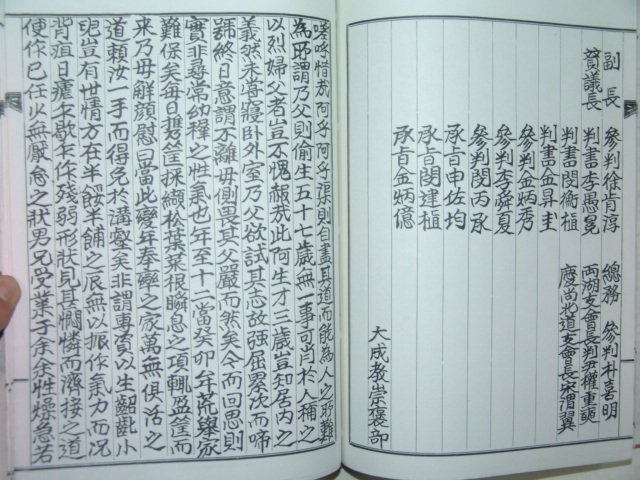 副長 參判徐肯淳 總務 參判朴喜明
贊議長 判書李愚冕 兩湖支會長判尹權重
判書閔衡植 慶尙北道支會長宋渭翼
判書金昇圭
參判金炳秀
參判李舜夏
參判閔丙承
承旨申佐均
承旨閔建植
承旨金炳億
大成敎崇褒部
嗟呼惜哉阿乎阿乎渠則自盡其道而能為人之所難
為所謂乃父則偷生五十七歲無一事可肖於人稱之
以烈婦父者豈不愧赧哉此阿生才三歲豈知居內之
義然未嘗寢臥外室乃父欲試其志故强屈累次而啼
號終日意謂不離母側畏其父嚴而然矣今而回思則
實非尋常幼穉之性氣也年至十二當癸卯年荒擧家
難保矣每日携筐採纈松葉菜根瞬息之項輒盈筐而
來乃母解顔慰曰當此變年奉之家萬無俱活之
道賴汝一手而得免於溝壑矣非謂專資以生齠齔小
兒豈有世情方在半餒半餔之辰無以振作氣力而况
背疽日癯年歇年作殘弱形狀見其憫憐而濟接之道
便作己任少無厭怠之狀男兄受業于余余性燥急若